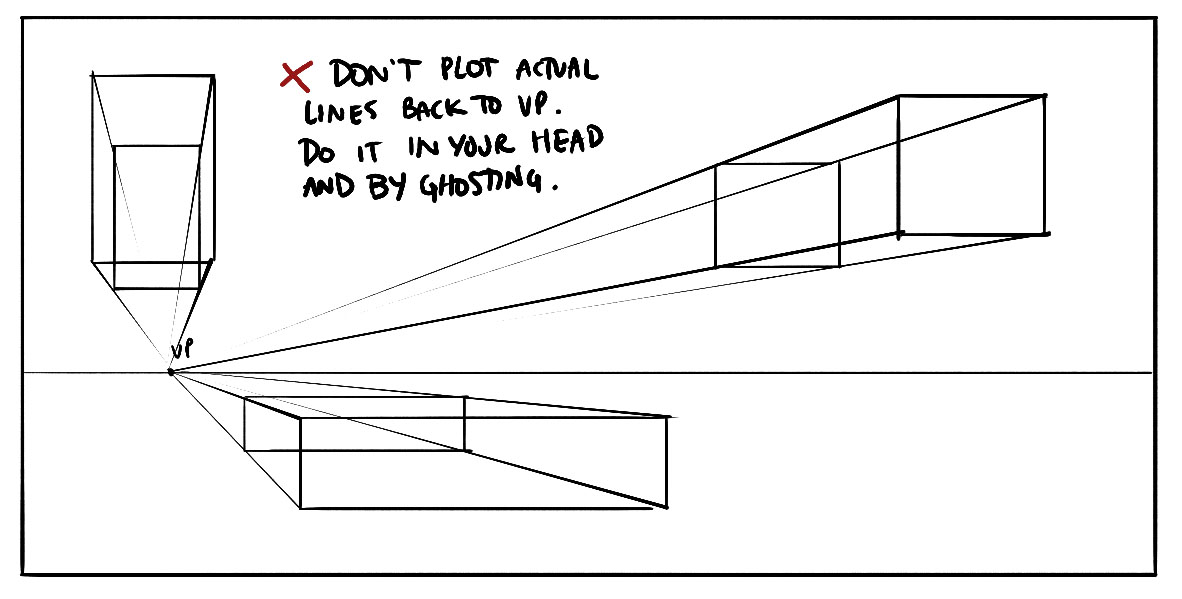 DON'T PLOT ACTUAL
LINES BACK TO VP.
DO IT IN YOUR HEAD
AND BY GHOSTING.
VP